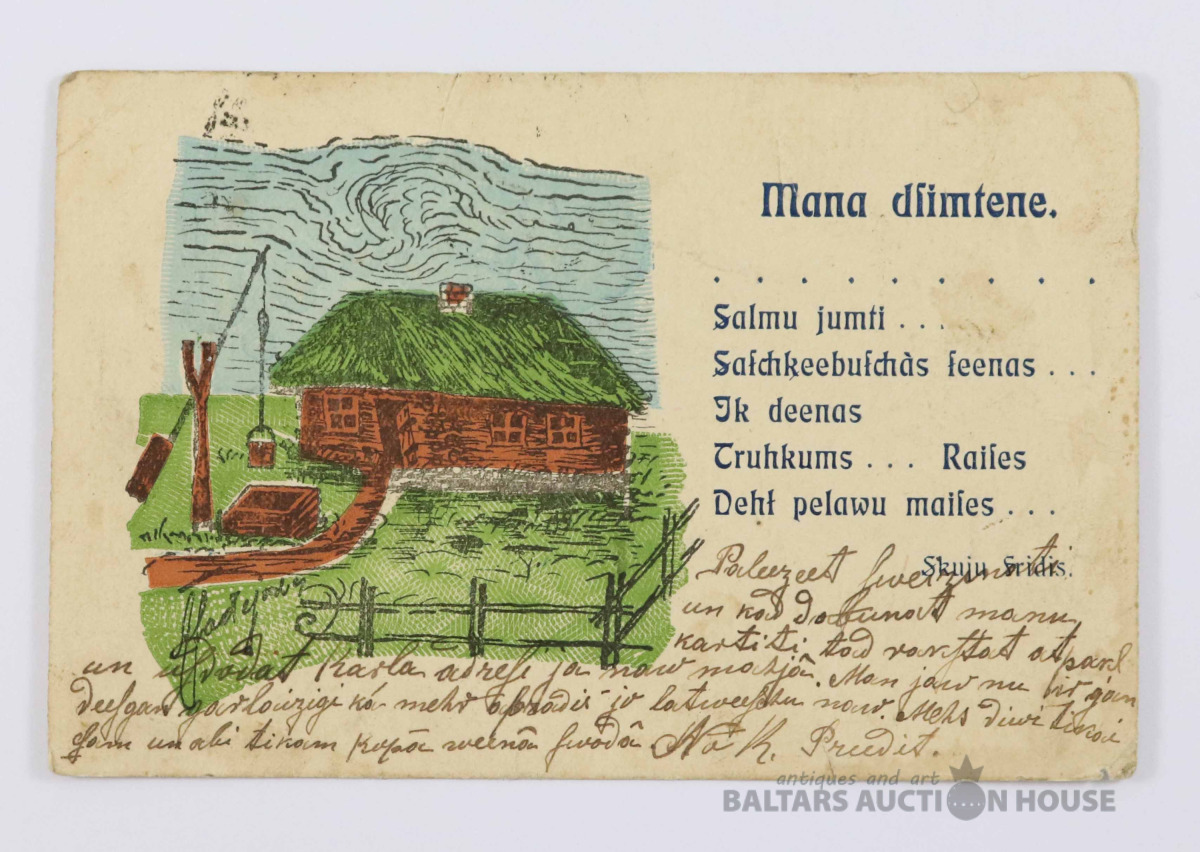 Mana dſimtene.
. . . . . . . . . .
Salmu jumti . . .
Saſchķeebuſchàs ſeenas . . .
Ik deenas
Truhkums . . . Raiſes
Dehł pelawu maiſes . . .
Skuju Fridis.
Paleezeet
un kad dabunat manu
kartiti, tad rakſtat
un uſdodat Karla adreſe ja naw maſjâ. Man jaw nu ir gan
deeſgan garlaizigi kâ mehr ir latweeſchu naw. Mehs diwi tikai
ſam un abi tikam kopâ weenâ N. Preedit.
antiques and art
BALTARS AUCTION HOUSE